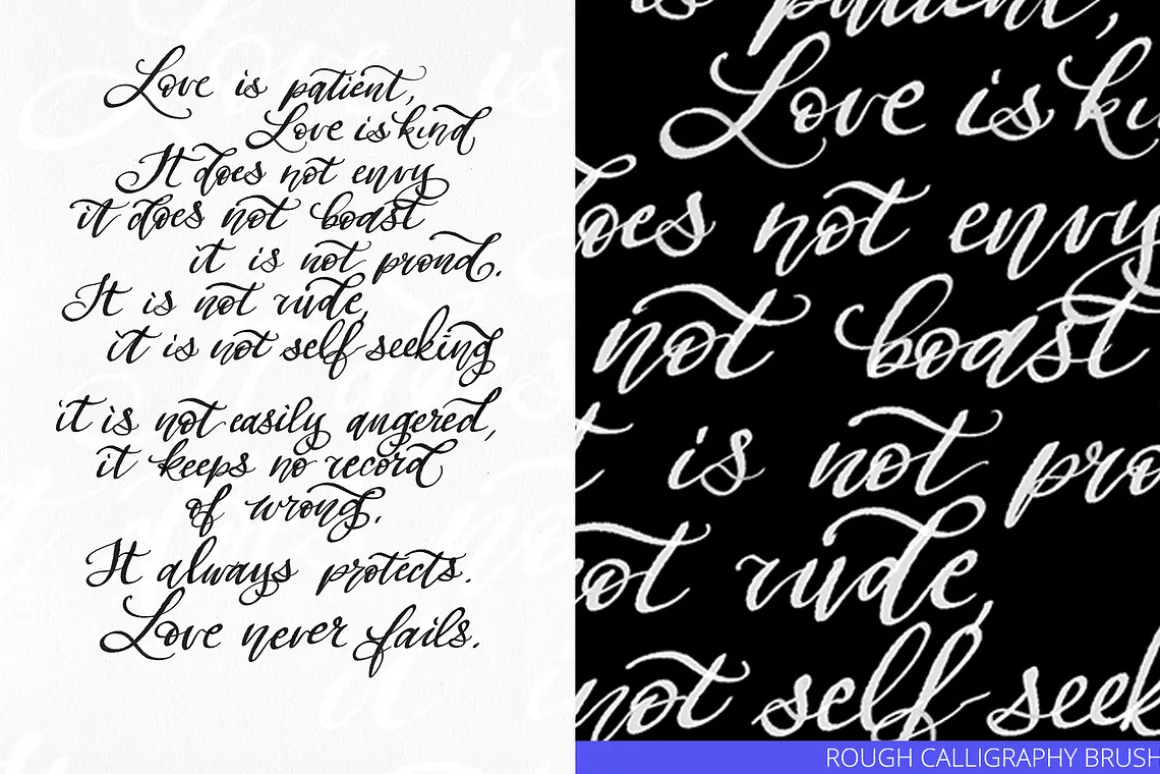 Love is patient,
Love is kind
It does not envy
it does not boast
it is not proud.
It is not rude,
it is not self seeking
it is not easily angered,
it keeps no record
of wrong.
It always protects.
Love never fails.
is patient,
Love is ki
does not envy
not boast
t is not pro
not rude,
not self seek
ROUGH CALLIGRAPHY BRUSH